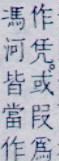 作凭。或叚爲
馮河皆當作